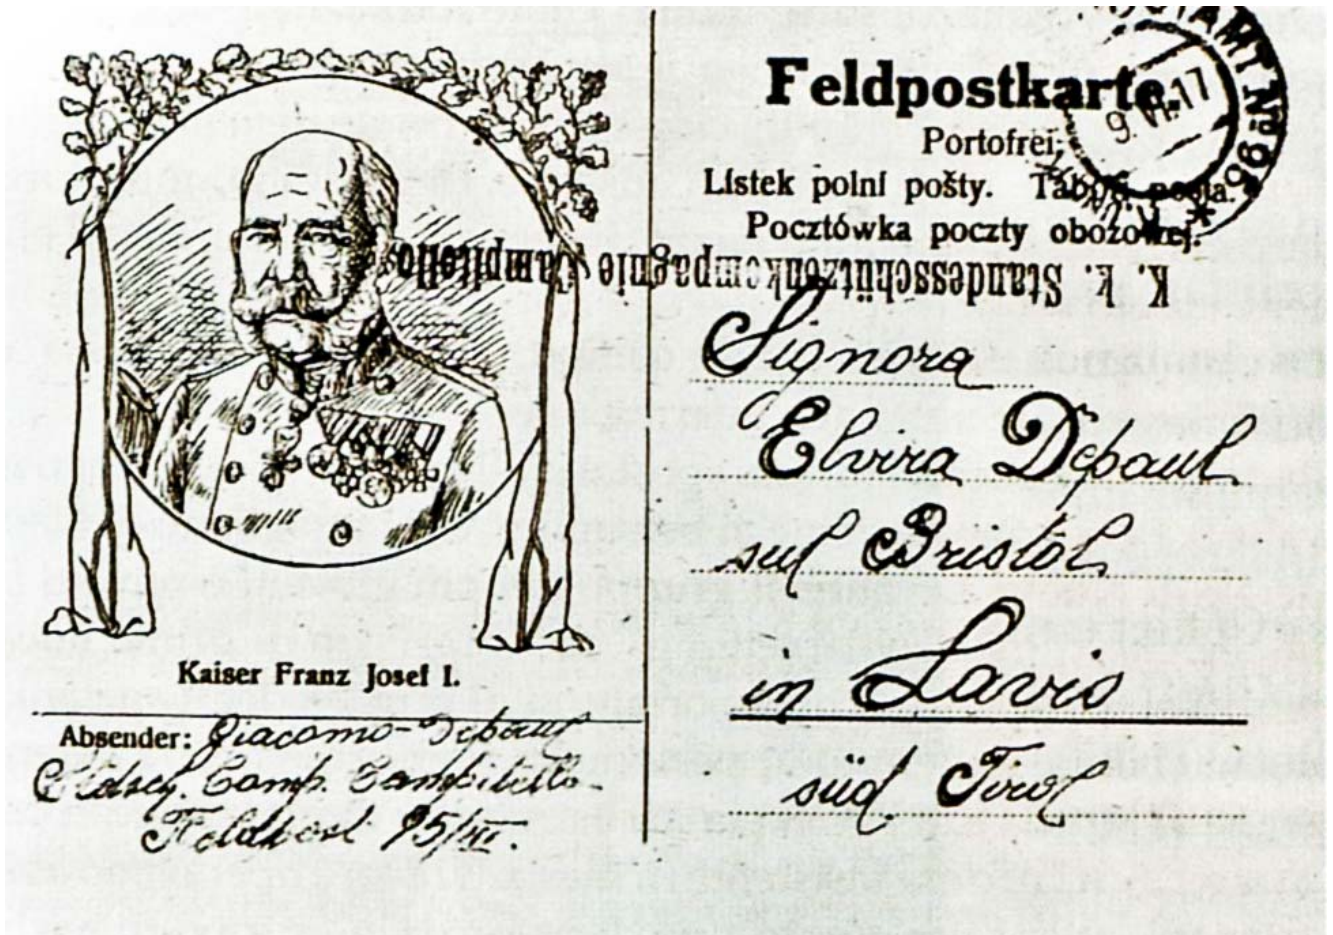 Kaiser Franz Josef I.
Absender: Giacomo Depaul
Stdsch. Comp. Campitello
Feldpost 95/III.
Feldpostkarte.
Portofrei.
Listek polní pošty. Tábori posta.
Pocztówka poczty obozowej.
9. VI. 17
K. k. Standesschützenkompagnie Campitello
Signora
Elvira Depaul
sul Bristol
in Lavis
süd Tirol